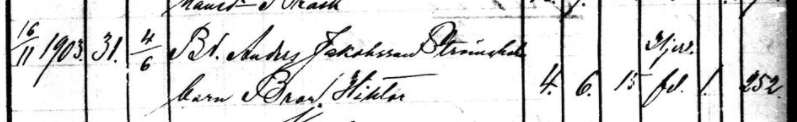 16/11 1903. 31. 4/6 Bd. Anders Jakobsson Strömsholm Hjer.
barn Bror Hiktor 4. 6. 15 fd. 1. 252.